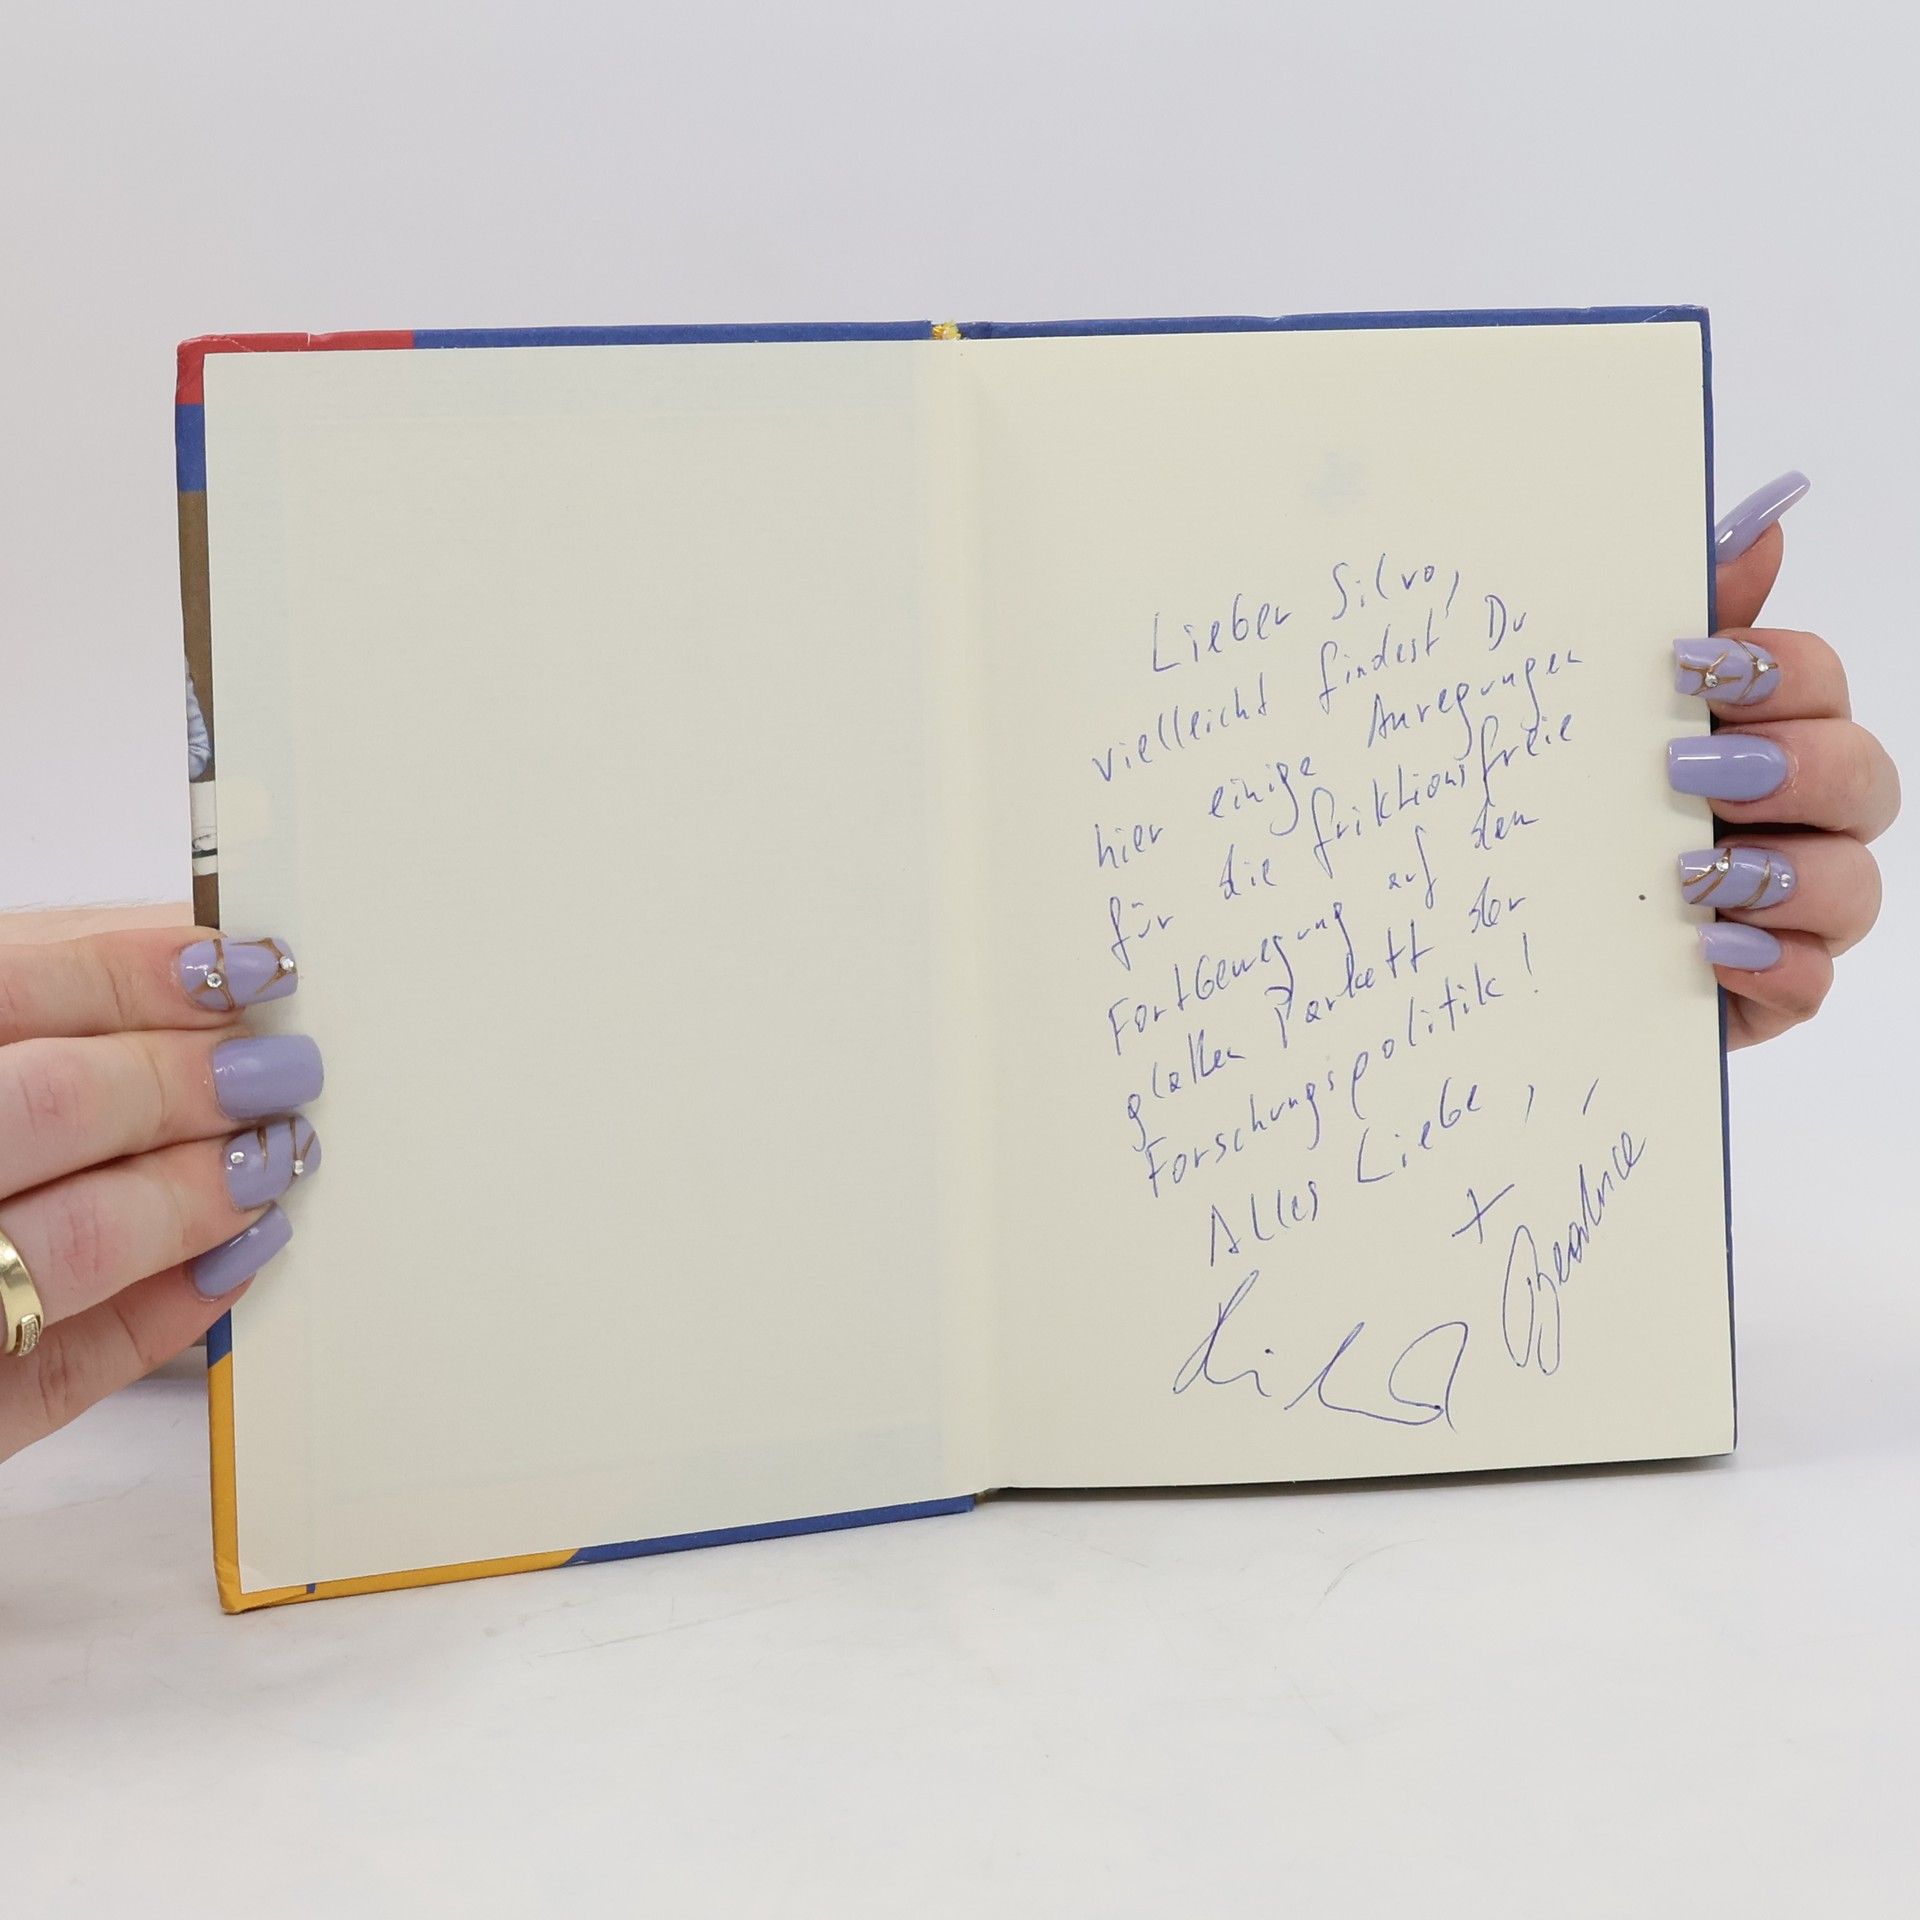 Lieber Silvo,
vielleicht findest Du
hier einige Anregungen
für die friktionsfreie
Fortbewegung auf dem
glatten Parkett der
Forschungspolitik!
Alles Liebe,
+ Beatrice